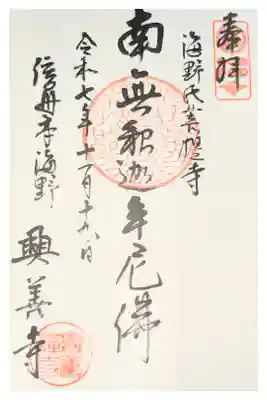 奉拝
海野氏菩提寺
南無釈迦牟尼佛
令和七年十一月十九日
信州本海野
興善寺